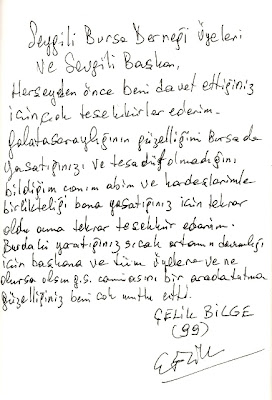 Seygili Bursa Derneği Üyeleri
ve Sevgili Başkan,
Herşeyden önce beni davet ettiğiniz
için çok teşekkürler ederim.
Galatasaraylılığının güzelliğini Bursa da
yaşatığınızı ve tesadüf olmadığını
bildiğim canım abim ve kardeşlerimle
birlikteliği bana yaşatığınız için tekrar
ama tekrar teşekkür ederim.
Burdaki yarattığınız sıcak ortamın devamlılığı
için başkana ve tüm üyelere ve ne
olursa olsun g.s. camiasını bir arada tutma
güzelliğiniz beni çok mutlu etti.
ÇELİK BİLGE
(99)
ÇELİK